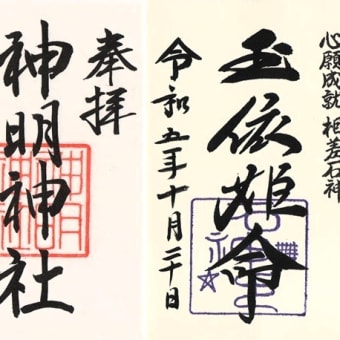 奉拝
神明神社
心願成就 相差石神
玉依姫命
令和五年十月二十日